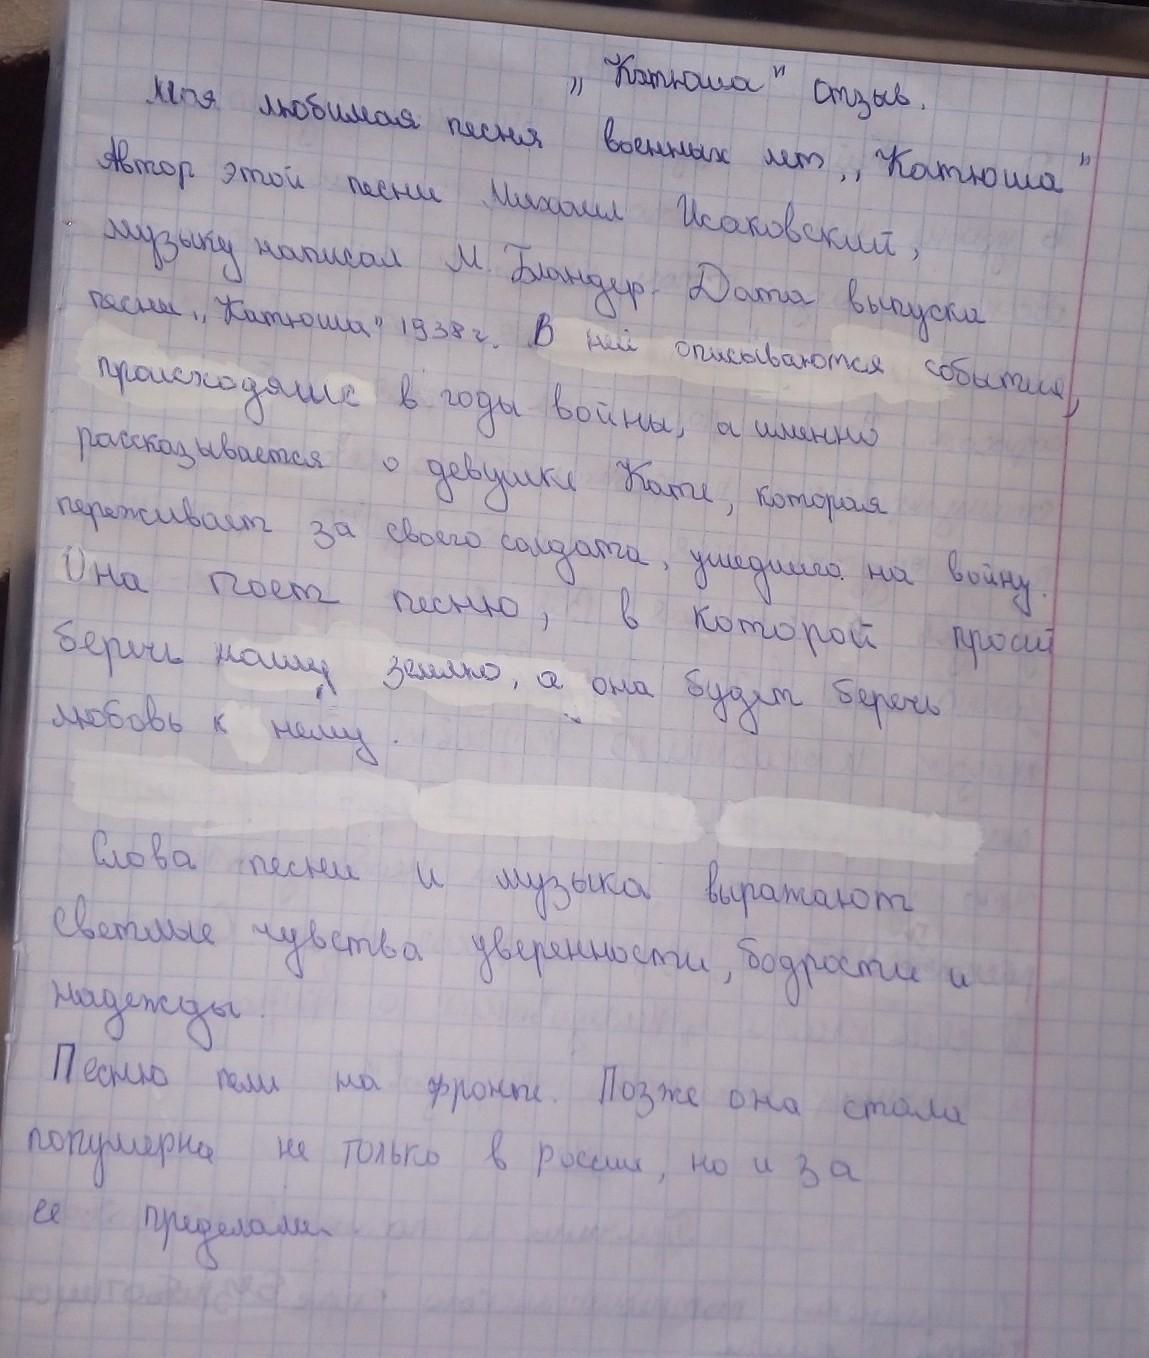 „Катюша" отзыв.
Моя любимая песня военных лет „Катюша"
Автор этой песни Михаил Исаковский,
музыку написал М. Бландер. Дата выпуска
песни „Катюша" 1938 г. В ней описываются события,
происходящие в годы войны, а именно
рассказывается о девушке Кате, которая
переживает за своего солдата, ушедшего на войну.
Она поет песню, в которой просит
беречь нашу землю, а она будет беречь
любовь к нему.
Слова песни и музыка выражают
светлые чувства уверенности, бодрости и
надежды.
Песню пели на фронте. Позже она стала
популярна не только в россии, но и за
ее пределами.